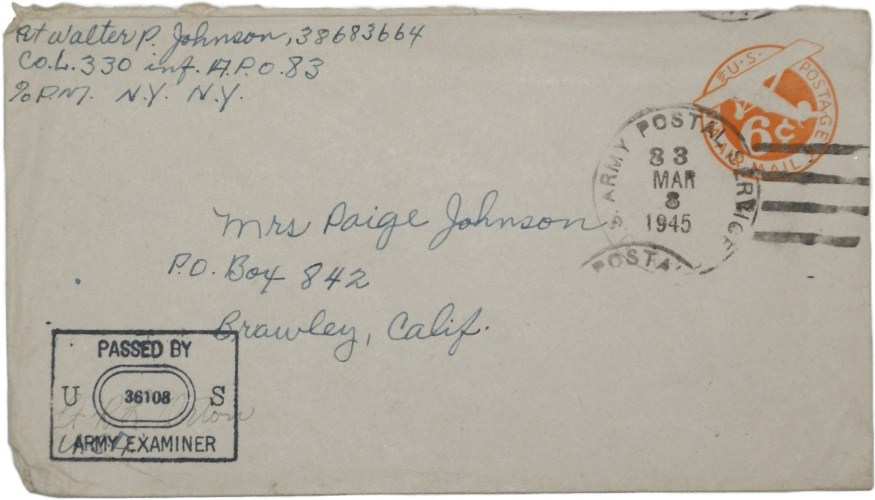 Pvt Walter P. Johnson, 38683664
Co. L. 330 inf. A.P.O. 83
% P.M. N.Y. N.Y.
U.S. POSTAGE
6¢
VIA AIR MAIL
U.S. ARMY POSTAL SERVICE
83
MAR
8
1945
POSTAL
Mrs Paige Johnson
P.O. Box 842
Brawley, Calif.
PASSED BY
U 36108 S
ARMY EXAMINER